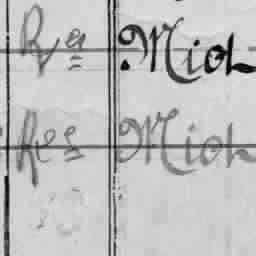 Ra Mich
Res Mich